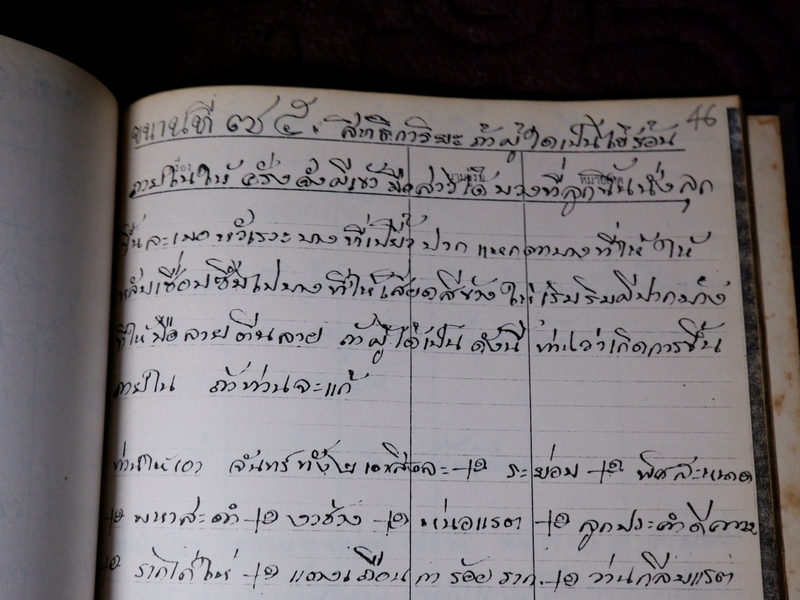 46
ขนานที่ ๓๕. สิทธิการิยะ ถ้าผู้ใดเป็นไข้ร้อน
ภายในให้ คลั่ง ดั่งผีเข้า มือ บางทีลูกขึ้นนั่ง ลุก
ขึ้นละเมอ หัวเราะ บางทีเบี้ยวปาก แหกตาบางทีให้ ให้
หลับเชื่อมซึมไปบางทีให้เสียดสีข้าง ให้เริมริมฝีปากบ้าง
ที่ให้มือลายตีนลาย ถ้าผู้ใดเป็น ดังนี้ ท่านว่าเกิดการขึ้น
ภายใน ถ้าท่านจะแก้
ท่านให้เอา จันทร์ทั้ง๒ เอาสิ่งละ ๑ ระย่อม ๑ พิศสะหนาด
๑ พญาสะดำ ๑ งาช้าง ๑ หน่อแรด ๑ ลูกประคำดีควาย
๑ รากไคร้ ๑ แตงเถื่อน ๑ ร้อยราก ๑ ว่านกลีบแรด